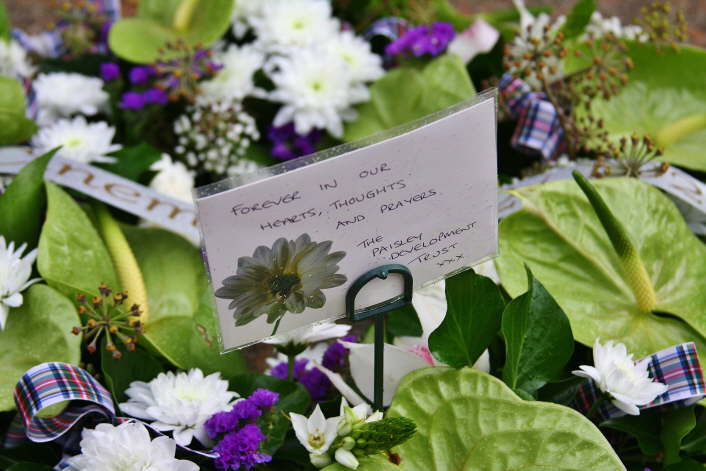 FOREVER IN OUR
HEARTS, THOUGHTS
AND PRAYERS.
THE
PAISLEY
DEVELOPMENT
TRUST
xxx